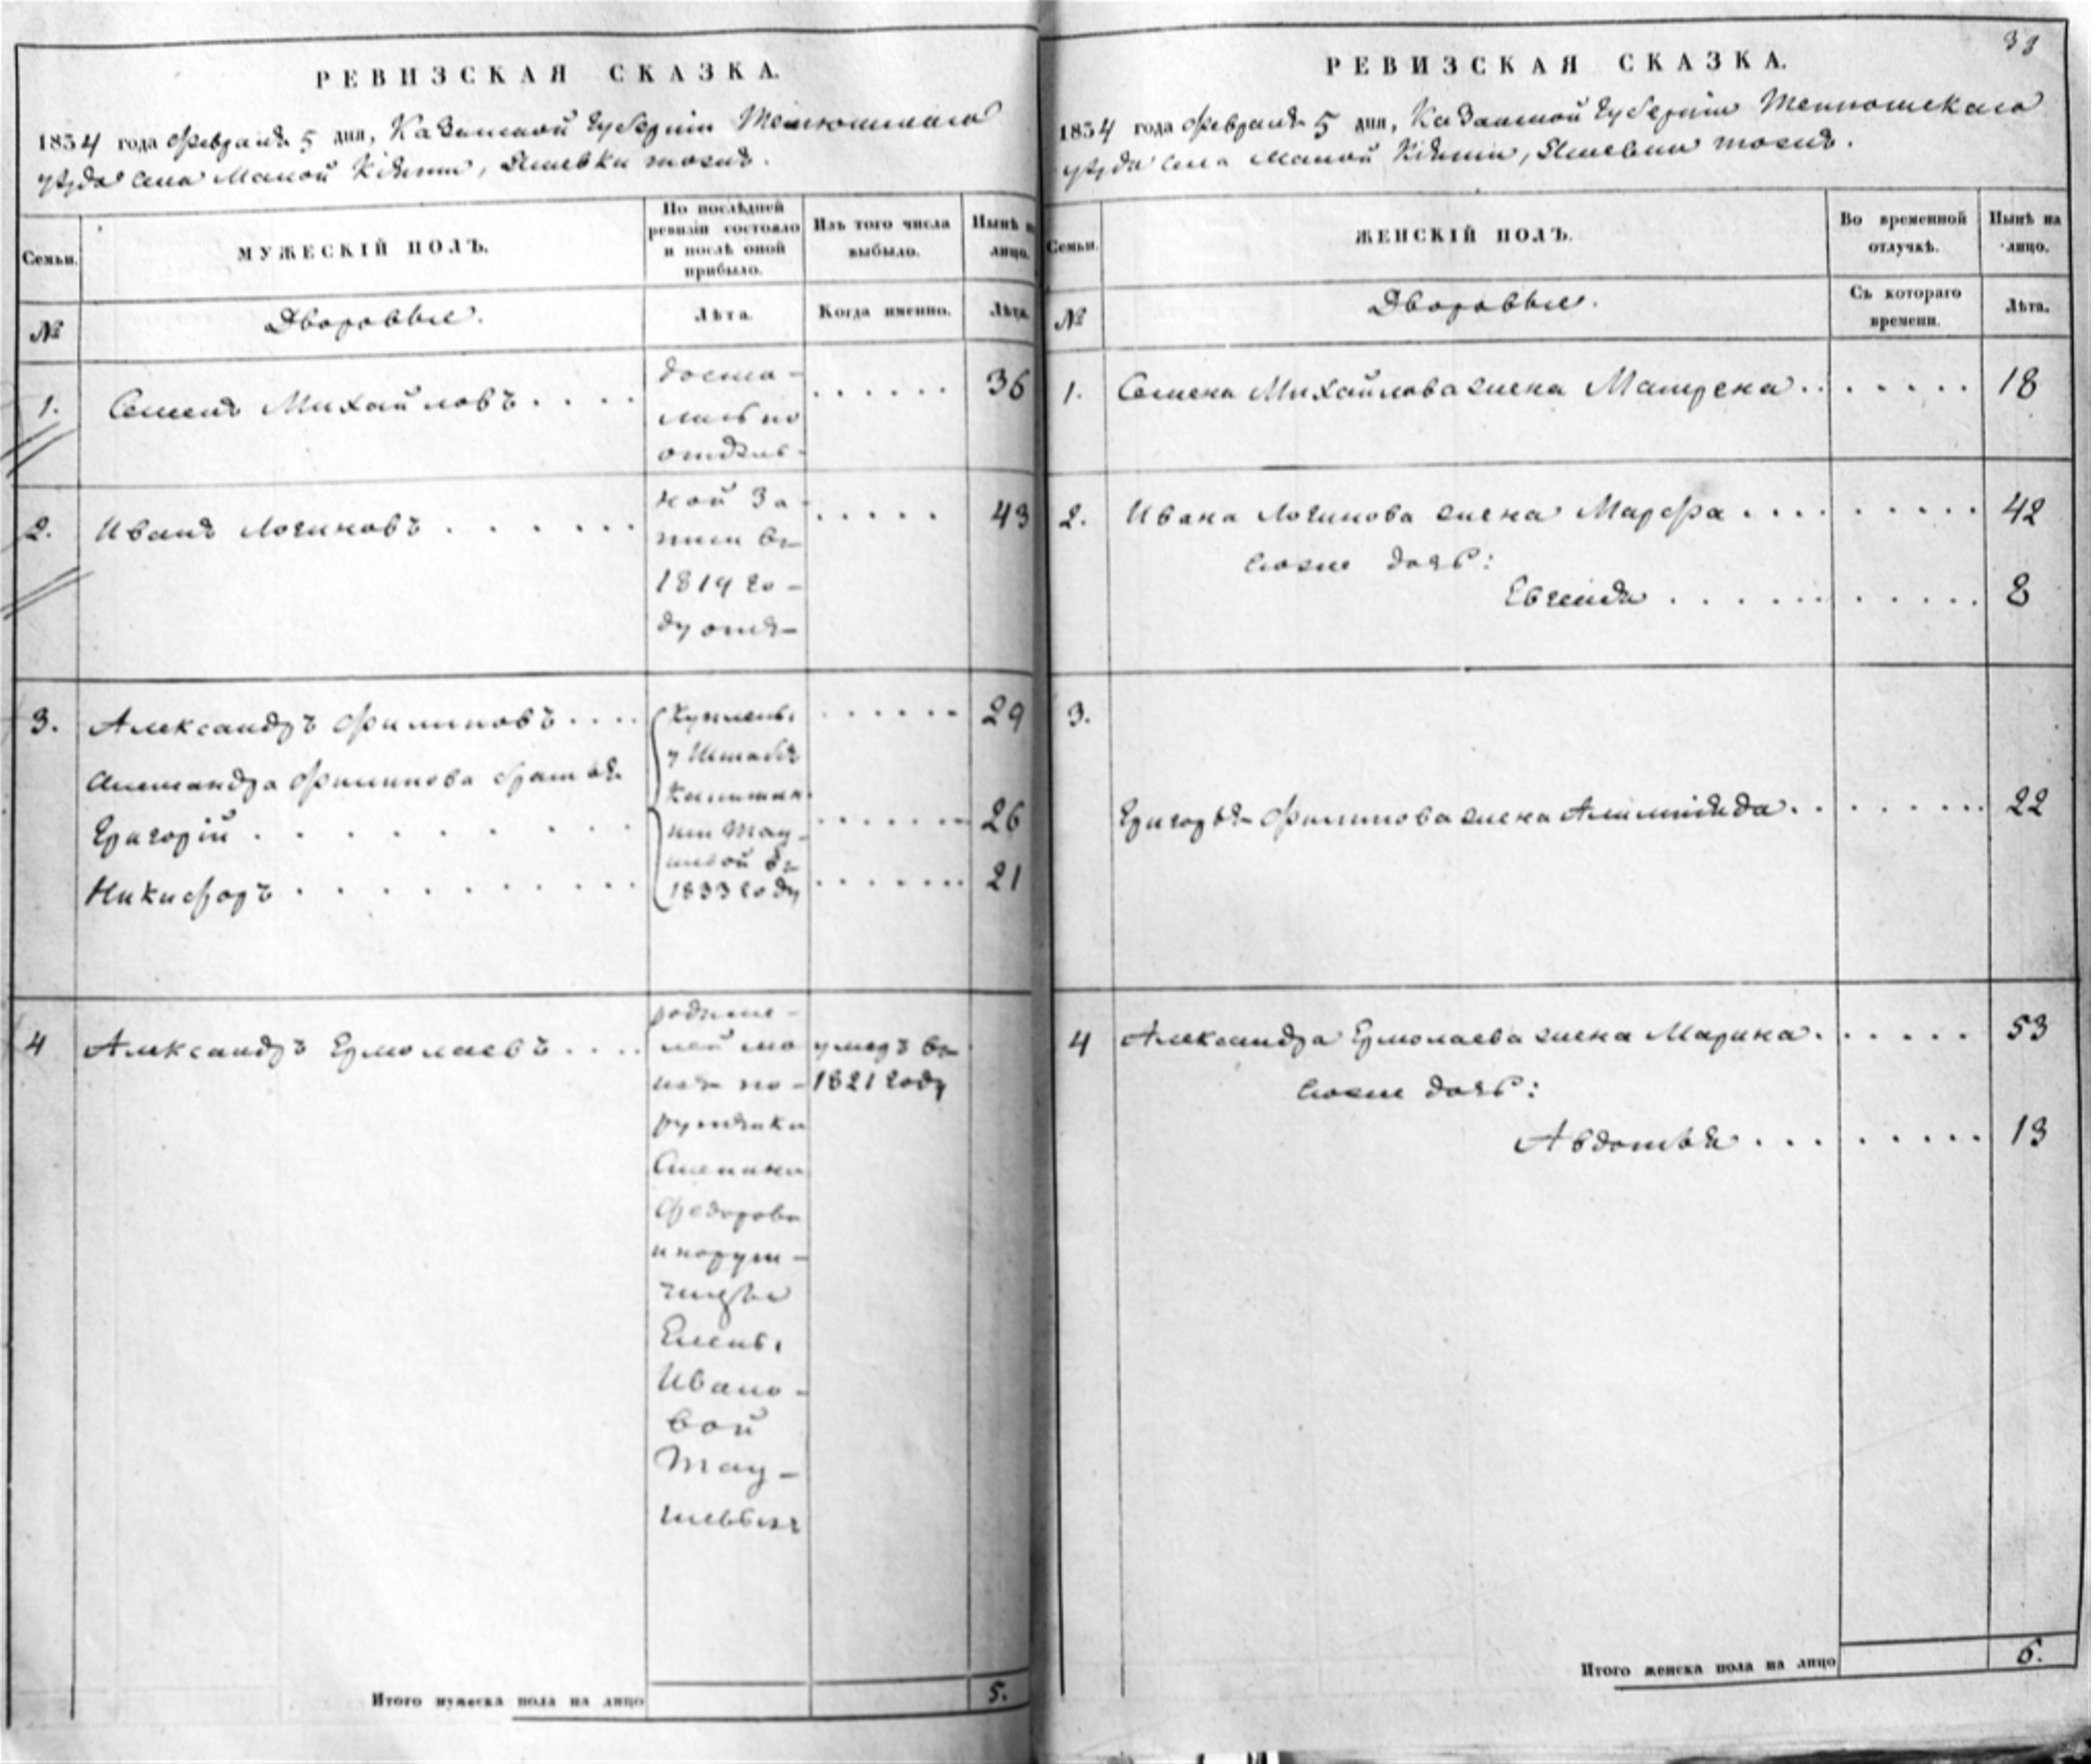 РЕВИЗСКАЯ СКАЗКА.
1834 года Февраля 5 дня, Казанской Губерніи Тетюшскаго
уѣзда села Малой
Семьи.
МУЖЕСКІЙ ПОЛЪ.
По послѣдней
ревизіи состояло
и послѣ оной
прибыло.
Изъ того числа
выбыло.
Нынѣ на
лицо.
№
Дворовые.
Лѣта.
Когда именно.
Лѣта.
1. Семенъ Михайловъ . . . . 36
доста-
лись по
отдѣль-
2. Иванъ Логиновъ . . . . . . 43
ной за
писи въ
1819 го-
ду отъ
3. Александръ Филиповъ . . . . 29
Александра Филипова братья
Григорій . . . . . . . . . 26
Никифоръ . . . . . . . . . 21
Куплены
у Штабсъ
Капитан
ши Тау-
шевой въ
1833 году
4 Александръ Ермолаевъ . . . .
родите-
лей мо
ихъ по-
рутчика
Степана
Федорова
и порут-
чицы
Елены
Ивано-
вой
Тау-
шевыхъ
умеръ въ
1821 году
Итого мужеска пола на лицо 5.
33
РЕВИЗСКАЯ СКАЗКА.
1834 года Февраля 5 дня, Казанской Губерніи Тетюшскаго
уѣзда села Малой
Семьи.
ЖЕНСКІЙ ПОЛЪ.
Во временной
отлучкѣ.
Нынѣ на
лицо.
№
Дворовые.
Съ котораго
времени.
Лѣта.
1. Семена Михайлова жена Матрена . . . . . . . 18
2. Ивана Логинова жена Марфа . . . . . . . . . 42
дочь:
Евгенія . . . . . . . . . . . 8
3.
Григорья Филипова жена . . . . . . . . 22
4 Александра Ермолаева жена Марина . . . . . . 53
дочь:
Авдотья . . . . . . . . . 13
Итого женска пола на лицо 6.